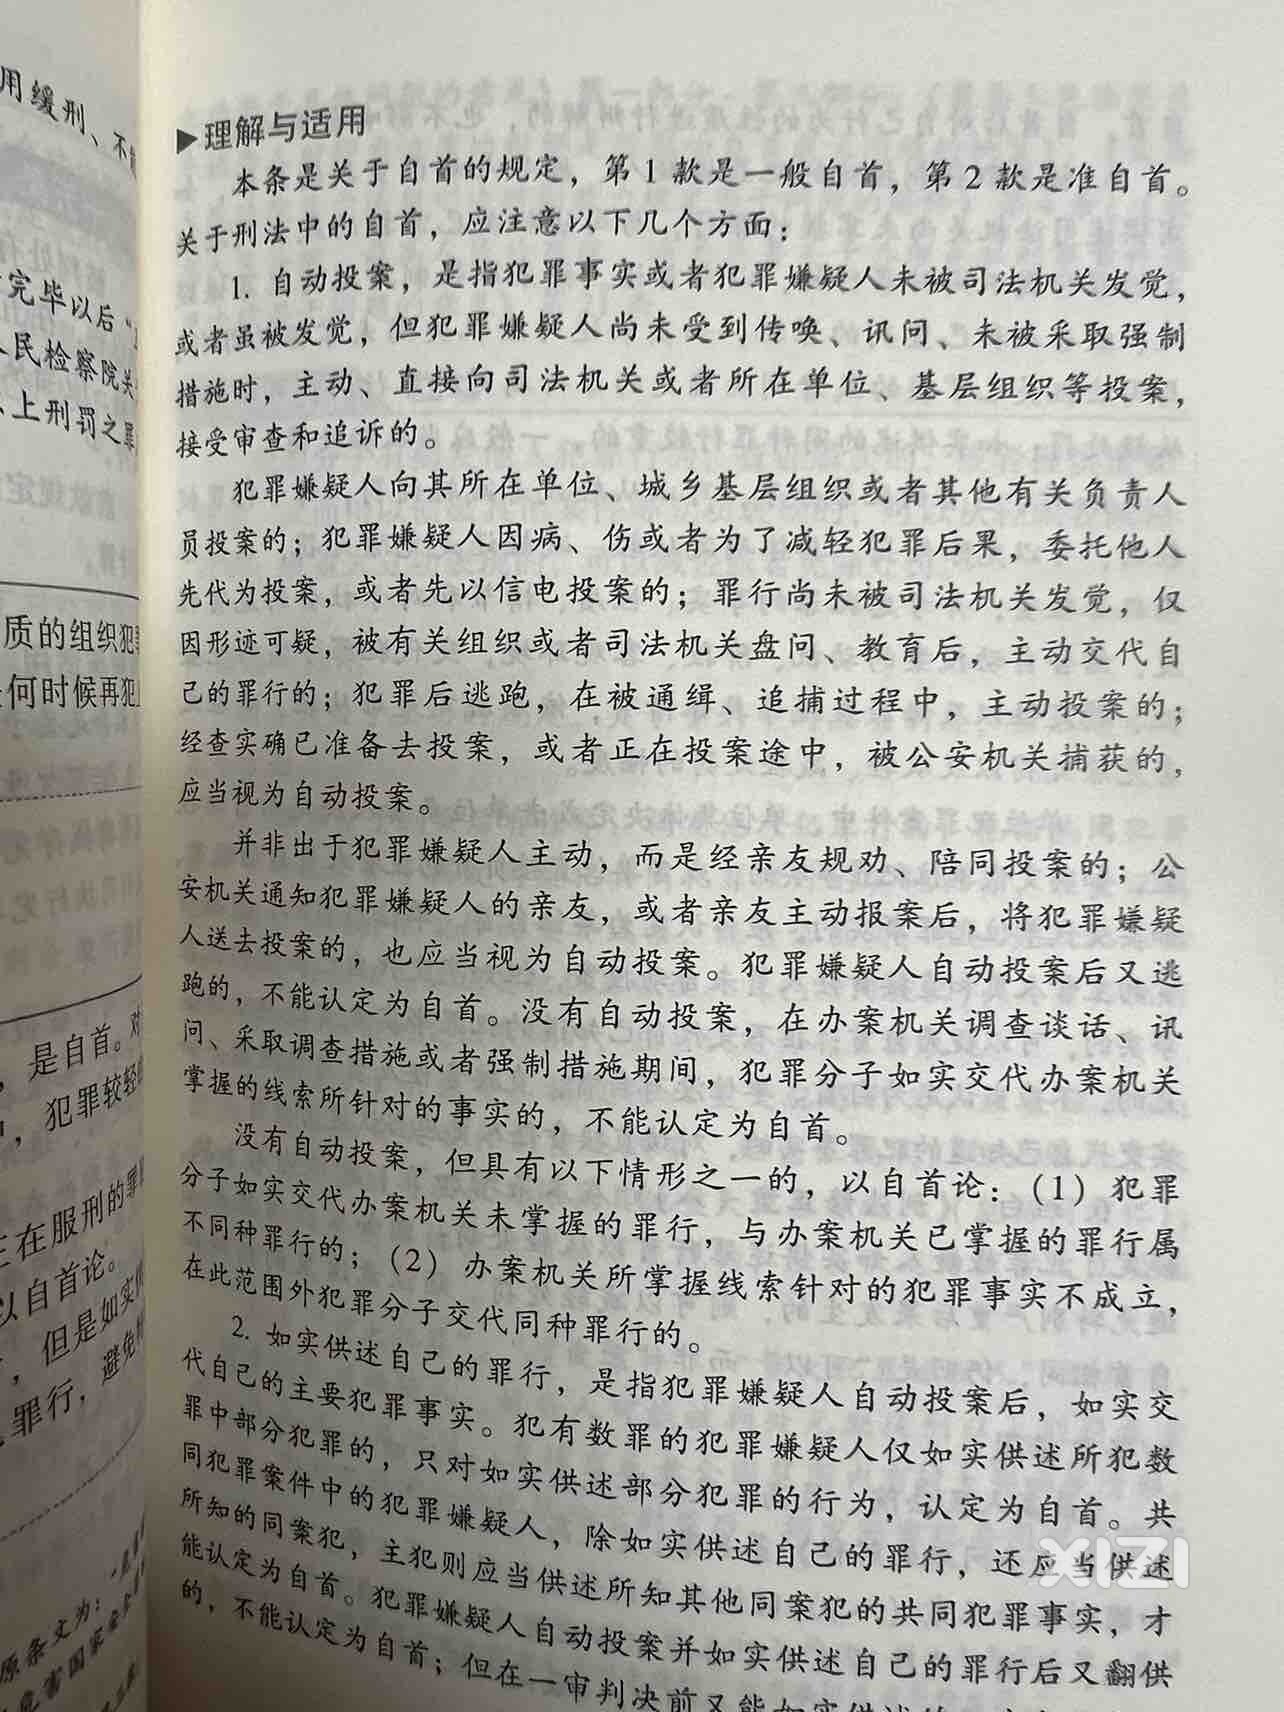 用缓刑、不
完毕以后“
民检察院关
上刑罚之罪
质的组织犯
何时候再犯
是自首。对
，犯罪较轻
在服刑的罪
以自首论。
，但是如实
罪行，避免
原条文为：
危害国家安全
▶理解与适用
本条是关于自首的规定，第1款是一般自首，第2款是准自首。
关于刑法中的自首，应注意以下几个方面：
1. 自动投案，是指犯罪事实或者犯罪嫌疑人未被司法机关发觉，
或者虽被发觉，但犯罪嫌疑人尚未受到传唤、讯问、未被采取强制
措施时，主动、直接向司法机关或者所在单位、基层组织等投案，
接受审查和追诉的。
犯罪嫌疑人向其所在单位、城乡基层组织或者其他有关负责人
员投案的；犯罪嫌疑人因病、伤或者为了减轻犯罪后果，委托他人
先代为投案，或者先以信电投案的；罪行尚未被司法机关发觉，仅
因形迹可疑，被有关组织或者司法机关盘问、教育后，主动交代自
己的罪行的；犯罪后逃跑，在被通缉、追捕过程中，主动投案的；
经查实确已准备去投案，或者正在投案途中，被公安机关捕获的，
应当视为自动投案。
并非出于犯罪嫌疑人主动，而是经亲友规劝、陪同投案的；公
安机关通知犯罪嫌疑人的亲友，或者亲友主动报案后，将犯罪嫌疑
人送去投案的，也应当视为自动投案。犯罪嫌疑人自动投案后又逃
跑的，不能认定为自首。没有自动投案，在办案机关调查谈话、讯
问、采取调查措施或者强制措施期间，犯罪分子如实交代办案机关
掌握的线索所针对的事实的，不能认定为自首。
没有自动投案，但具有以下情形之一的，以自首论：（1）犯罪
分子如实交代办案机关未掌握的罪行，与办案机关已掌握的罪行属
不同种罪行的；（2）办案机关所掌握线索针对的犯罪事实不成立，
在此范围外犯罪分子交代同种罪行的。
2. 如实供述自己的罪行，是指犯罪嫌疑人自动投案后，如实交
代自己的主要犯罪事实。犯有数罪的犯罪嫌疑人仅如实供述所犯数
罪中部分犯罪的，只对如实供述部分犯罪的行为，认定为自首。共
同犯罪案件中的犯罪嫌疑人，除如实供述自己的罪行，还应当供述
所知的同案犯，主犯则应当供述所知其他同案犯的共同犯罪事实，才
能认定为自首。犯罪嫌疑人自动投案并如实供述自己的罪行后又翻供
的，不能认定为自首；但在一审判决前又能如实供述的
XIZI